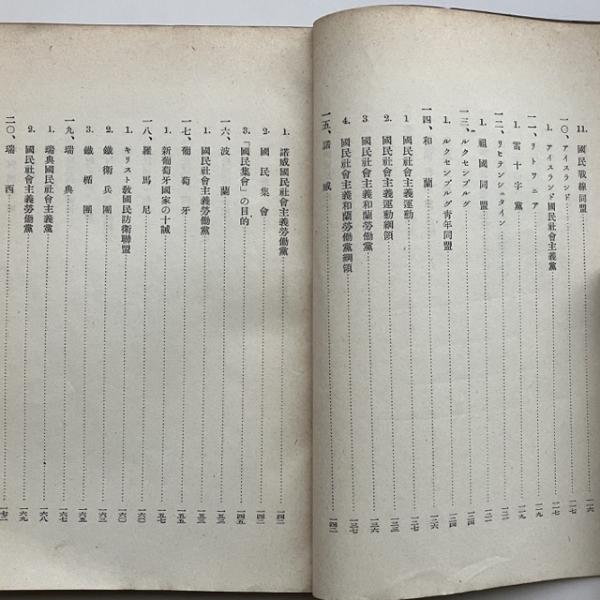 11. 國民戰線同盟……一一六
一〇、アイスランド……一一七
1. アイスランド國民社會主義黨……一一七
一一、リトワニア……一一九
1. 雷十字黨……一一九
一二、リヒテンシュタイン……一二一
1. 祖國同盟……一二一
一三、ルクセンブルグ……一二四
1. ルクセンブルグ青年同盟……一二四
一四、和蘭……一二六
1 國民社會主義運動……一二六
2. 國民社會主義運動綱領……一三三
3 國民社會主義和蘭勞働黨……一三六
4. 國民社會主義和蘭勞働黨綱領……一三七
一五、諾威……一四二
1. 諾威國民社會主義勞働黨……一四二
2. 國民集會……一四二
3. 『國民集會』の目的……一四五
一六、波蘭……一五三
1. 國民社會主義勞働黨……一五三
一七、葡萄牙……一五五
1. 新葡萄牙國家の十誡……一五七
一八、羅馬尼……一六〇
1. キリスト敎國民防衛聯盟……一六〇
2. 鐵衛兵團……一六三
3. 鐵楯團……一六五
一九、瑞典……一六七
1. 瑞典國民社會主義黨……一六八
2. 國民社會主義勞働黨……一六九
二〇、瑞西……一七二